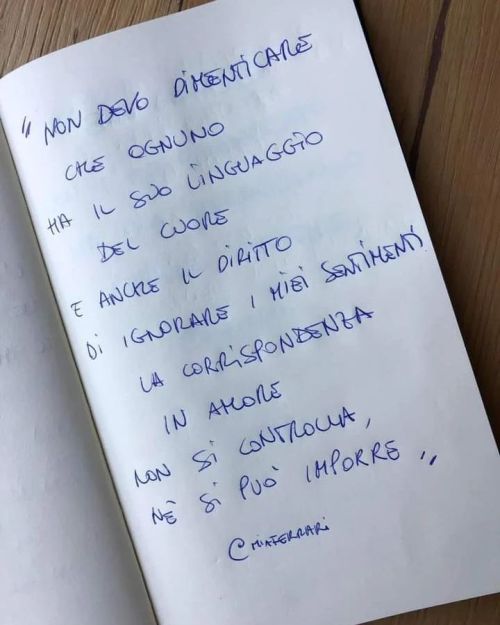 " NON DEVO DIMENTICARE
CHE OGNUNO
HA IL SUO LINGUAGGIO
DEL CUORE
E ANCHE IL DIRITTO
DI IGNORARE I MIEI SENTIMENTI.
LA CORRISPONDENZA
IN AMORE
NON SI CONTROLLA,
NÈ SI PUÒ IMPORRE "
@MIAFERRARI